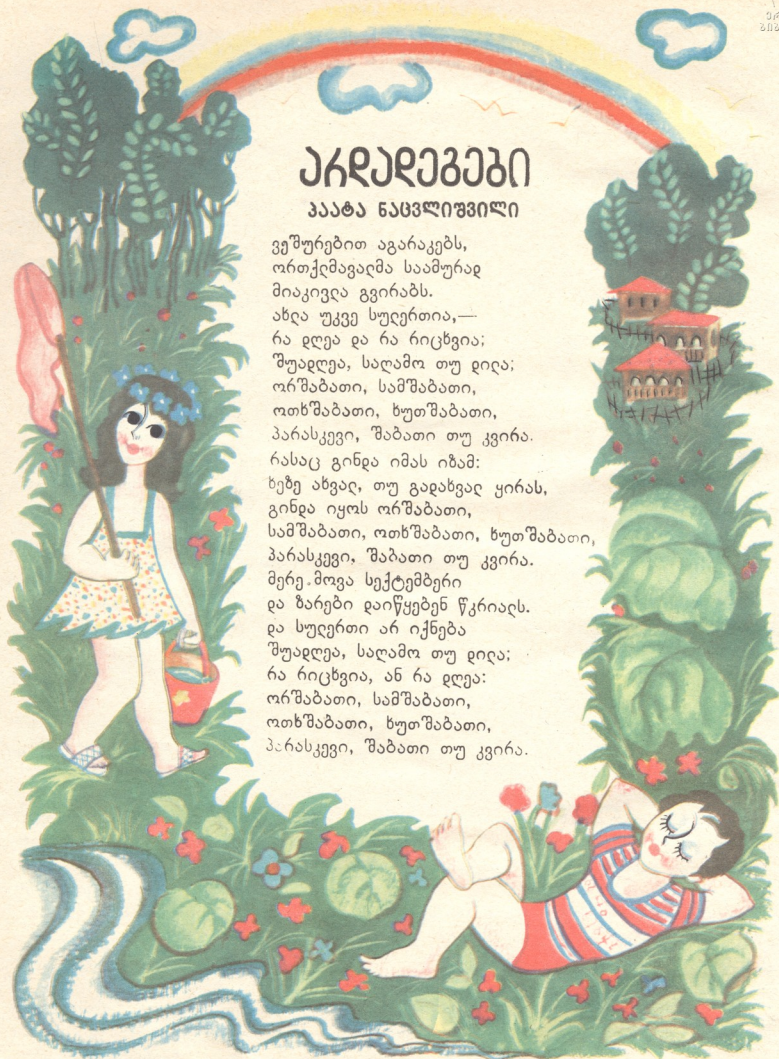 არდადეგები
პაატა ნაცვლიშვილი
ვეშურებით აგარაკებს,
ორთქლმავალმა საამურად
მიაკივლა გვირაბს.
ახლა უკვე სულერთია,—
რა დღეა და რა რიცხვია;
შუადღეა, საღამო თუ დილა;
ორშაბათი, სამშაბათი,
ოთხშაბათი, ხუთშაბათი,
პარასკევი, შაბათი თუ კვირა.
რასაც გინდა იმას იზამ:
ხეზე ახვალ, თუ გადახვალ ყირას,
გინდა იყოს ორშაბათი,
სამშაბათი, ოთხშაბათი, ხუთშაბათი,
პარასკევი, შაბათი თუ კვირა.
მერე მოვა სექტემბერი
და ზარები დაიწყებენ წკრიალს.
და სულერთი არ იქნება
შუადღეა, საღამო თუ დილა;
რა რიცხვია, ან რა დღეა:
ორშაბათი, სამშაბათი,
ოთხშაბათი, ხუთშაბათი,
პარასკევი, შაბათი თუ კვირა.